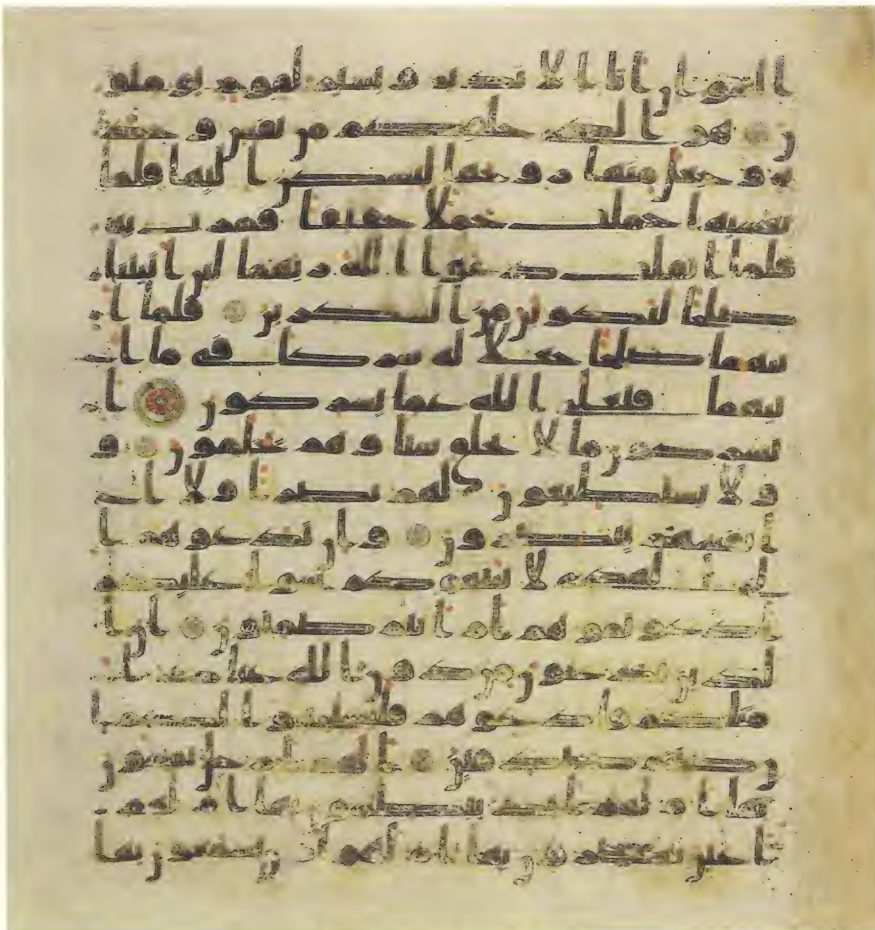 السو ان انا الا نذير وبشير لقوم يومنو
ن هو الذي خلقكم من نفس وحد
ة وجعل منها زوجها ليسكن اليها فلما
تغشيها حملت حملا خفيفا فمرت به
فلما اثقلت دعوا الله ربهما لين اتيتنا
صلحا لنكونن من الشكرين فلما ا
تيهما صلحا جعلا له شركا فيما ا
تيهما فتعلى الله عما يشركون ا
يشركون ما لا يخلق شيا وهم يخلقون و
ولا يستطيعون لهم نصرا ولا ا
انفسهم ينصرون وان تدعوهم ا
لى الهدى لا يتبعوكم سوا عليكم
ادعوتموهم ام انتم صمتون ان ا
لذين تدعون من دون الله عباد ا
مثلكم فادعوهم فليستجيبوا لكم ا
ن كنتم صدقين الهم ارجل يمشون
بها ام لهم ايد يبطشون بها ام لهم
اعين يبصرون بها ام لهم اذان يسمعون بها